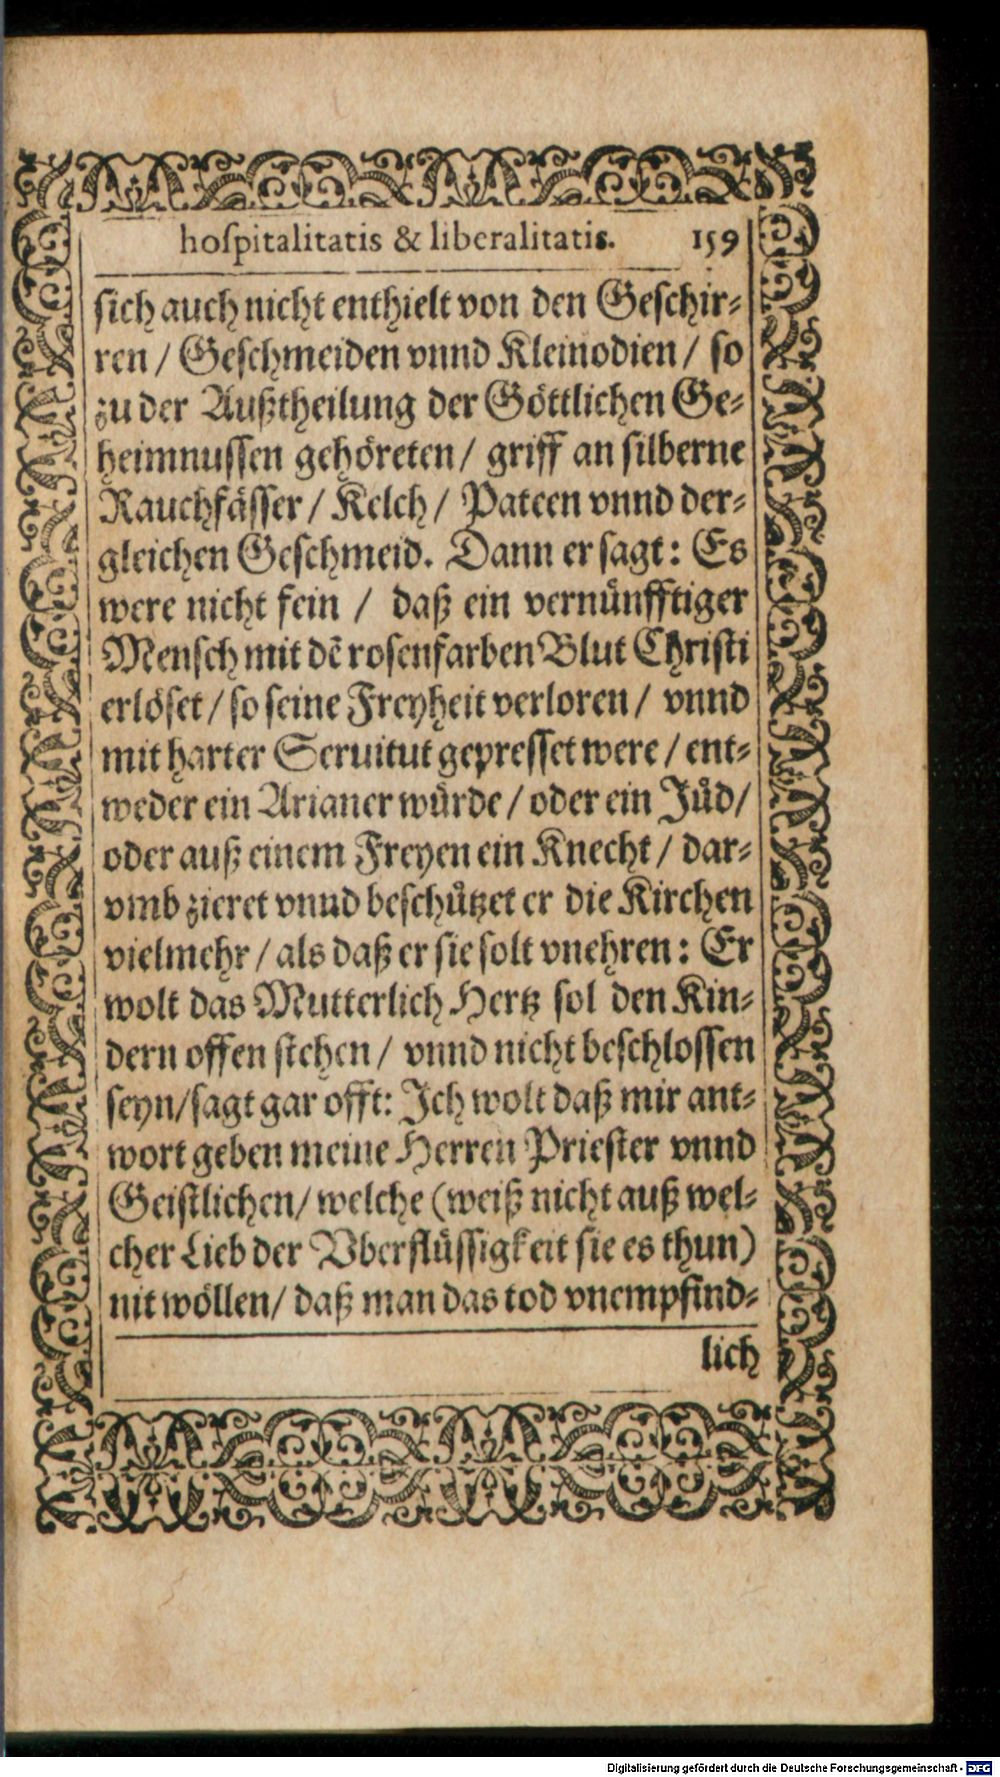 hoſpitalitatis & liberalitatis. 159
sich auch nicht enthielt von den Geschir-
ren / Geschmeiden vnnd Kleinodien / so
zu der Außtheilung der Göttlichen Ge-
heimnussen gehöreten / griff an silberne
Rauchfässer / Kelch / Pateen vnnd der-
gleichen Geschmeid. Dann er sagt: Es
were nicht fein / daß ein vernünfftiger
Mensch mit dẽ rosenfarben Blut Christi
erlöset / so seine Freyheit verloren / vnnd
mit harter Seruitut gepresset were / ent-
weder ein Arianer würde / oder ein Jůd /
oder auß einem Freyen ein Knecht / dar-
vmb zieret vnnd beschützet er die Kirchen
vielmehr / als daß er sie solt vnehren: Er
wolt das Mutterlich Hertz sol den Kin-
dern offen stehen / vnnd nicht beschlossen
seyn/sagt gar offt: Ich wolt daß mir ant-
wort geben meine Herren Priester vnnd
Geistlichen/ welche (weiß nicht auß wel-
cher Lieb der Vberflüssigkeit sie es thun)
nit wöllen/ daß man das tod vnempfind-
lich
Digitalisierung gefördert durch die Deutsche Forschungsgemeinschaft - DFG